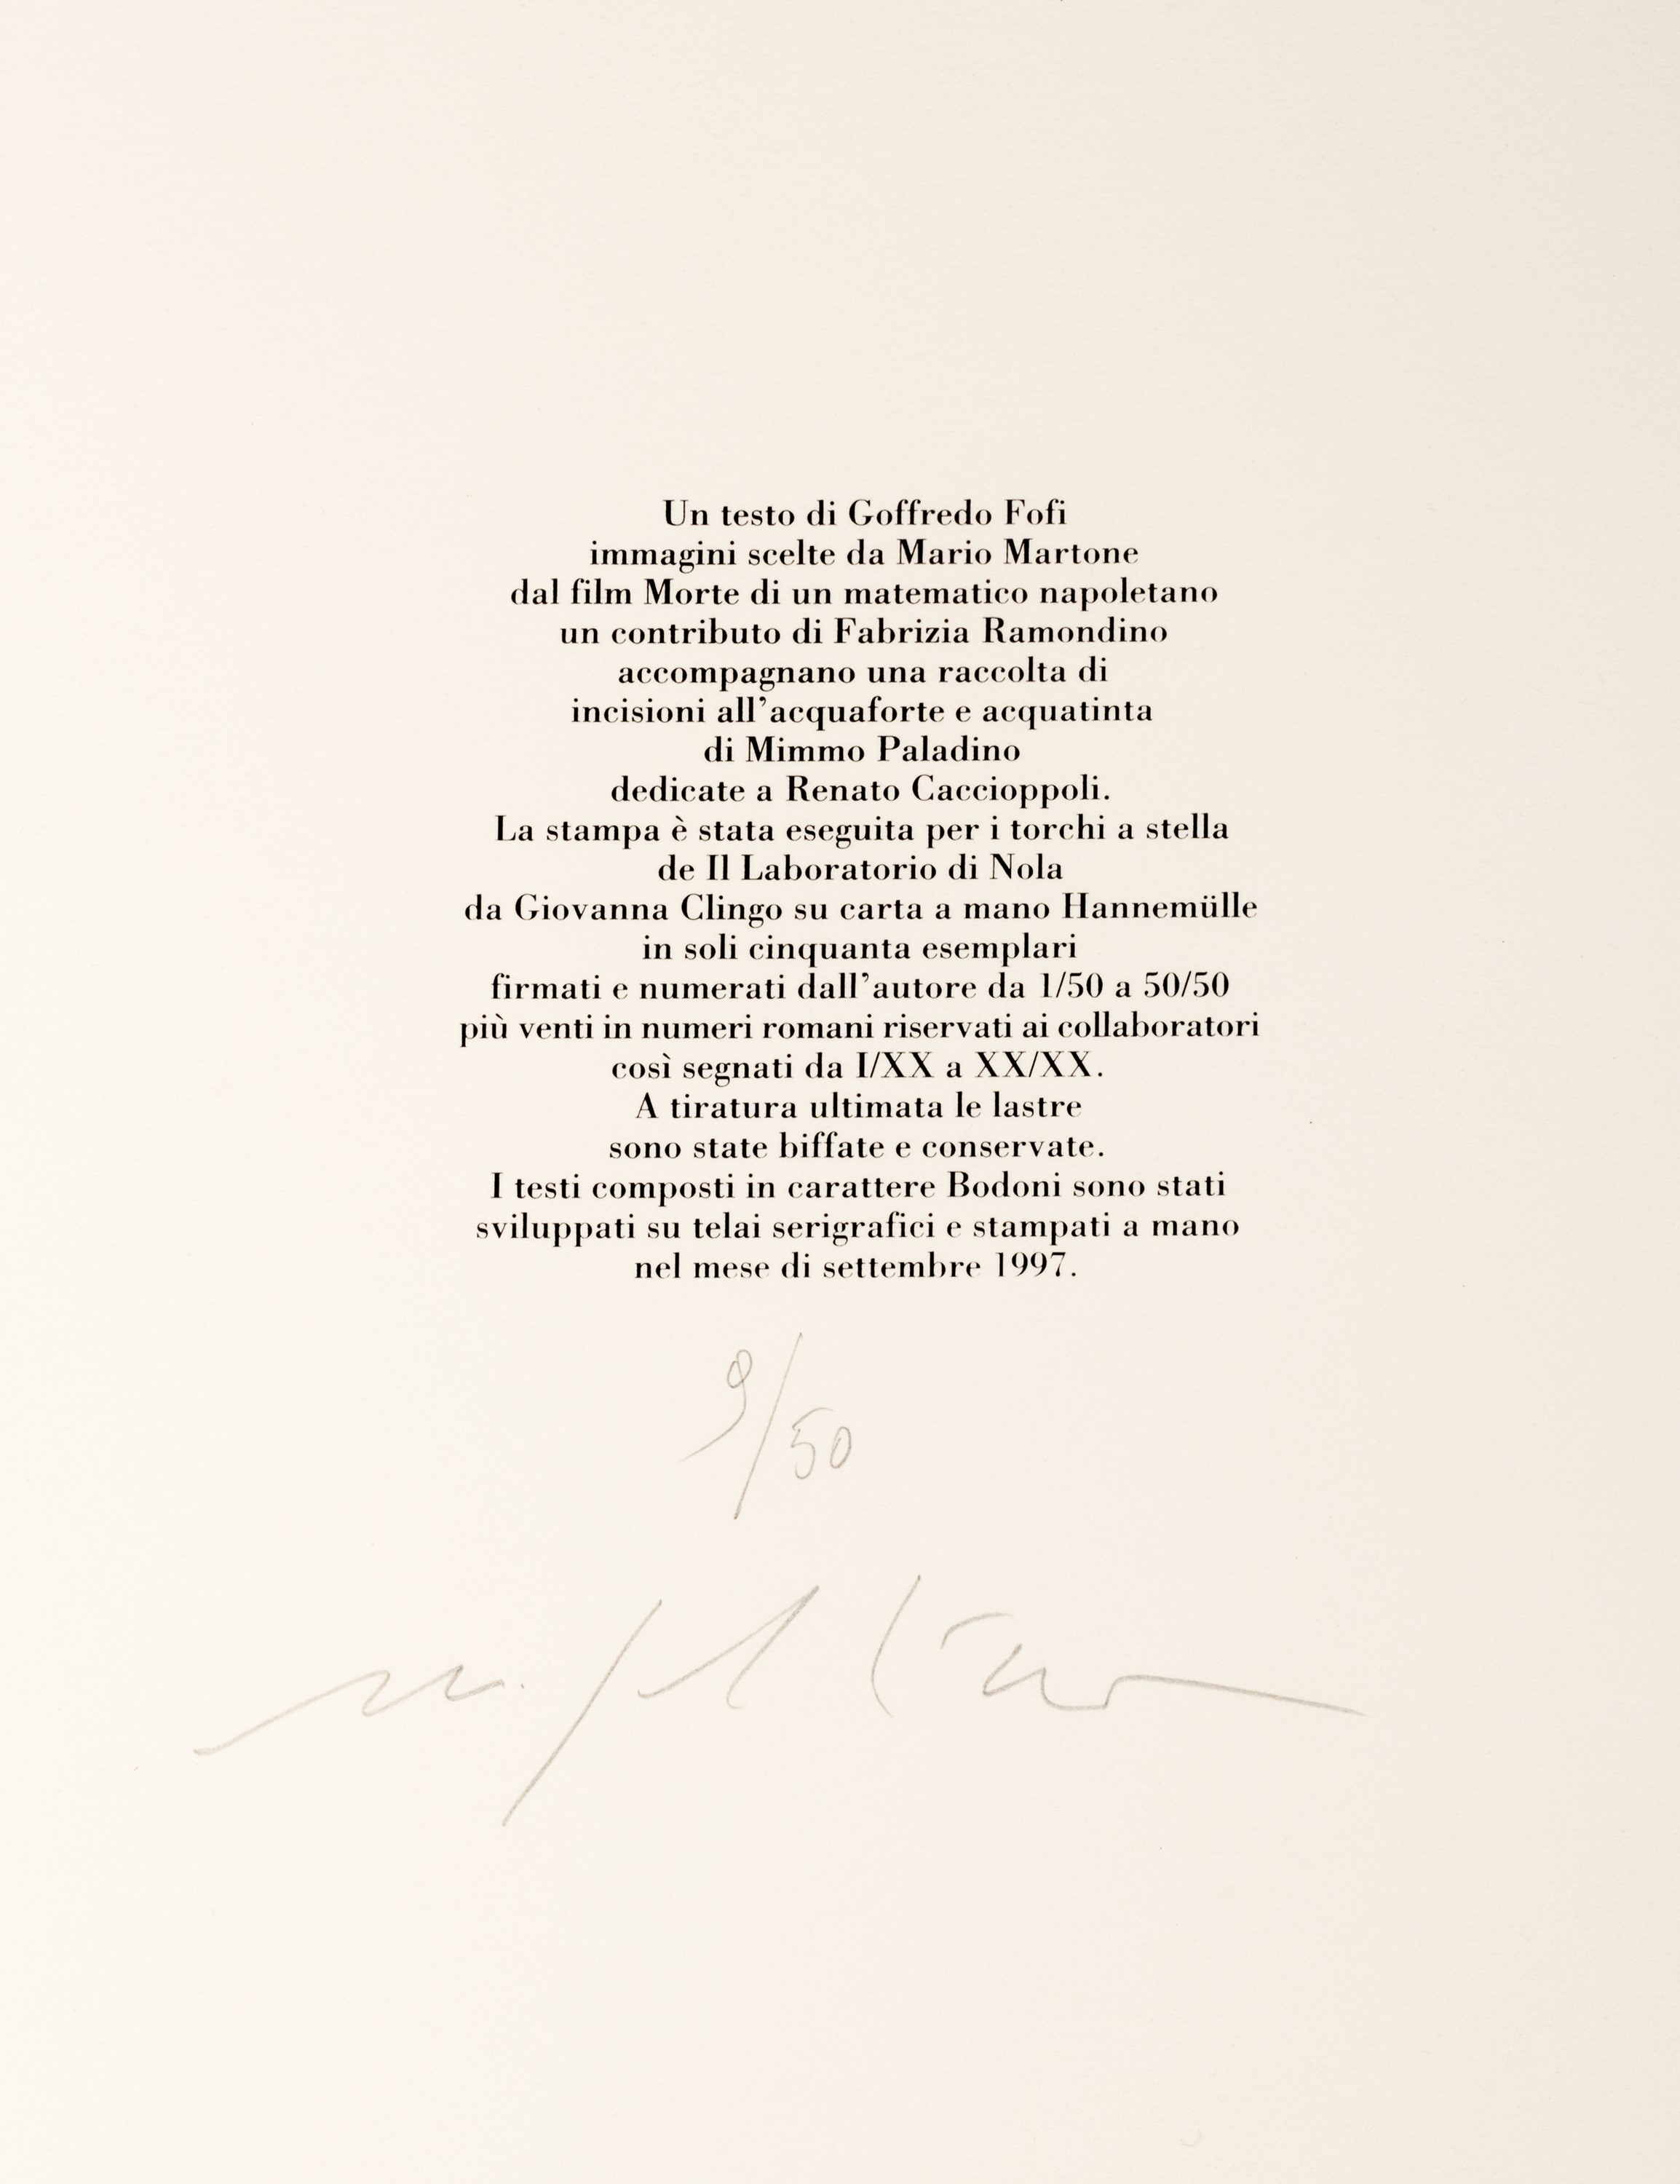 Un testo di Goffredo Fofi
immagini scelte da Mario Martone
dal film Morte di un matematico napoletano
un contributo di Fabrizia Ramondino
accompagnano una raccolta di
incisioni all’acquaforte e acquatinta
di Mimmo Paladino
dedicate a Renato Caccioppoli.
La stampa è stata eseguita per i torchi a stella
de Il Laboratorio di Nola
da Giovanna Clingo su carta a mano Hannemülle
in soli cinquanta esemplari
firmati e numerati dall’autore da 1/50 a 50/50
più venti in numeri romani riservati ai collaboratori
così segnati da I/XX a XX/XX.
A tiratura ultimata le lastre
sono state biffate e conservate.
I testi composti in carattere Bodoni sono stati
sviluppati su telai serigrafici e stampati a mano
nel mese di settembre 1997.
9/50